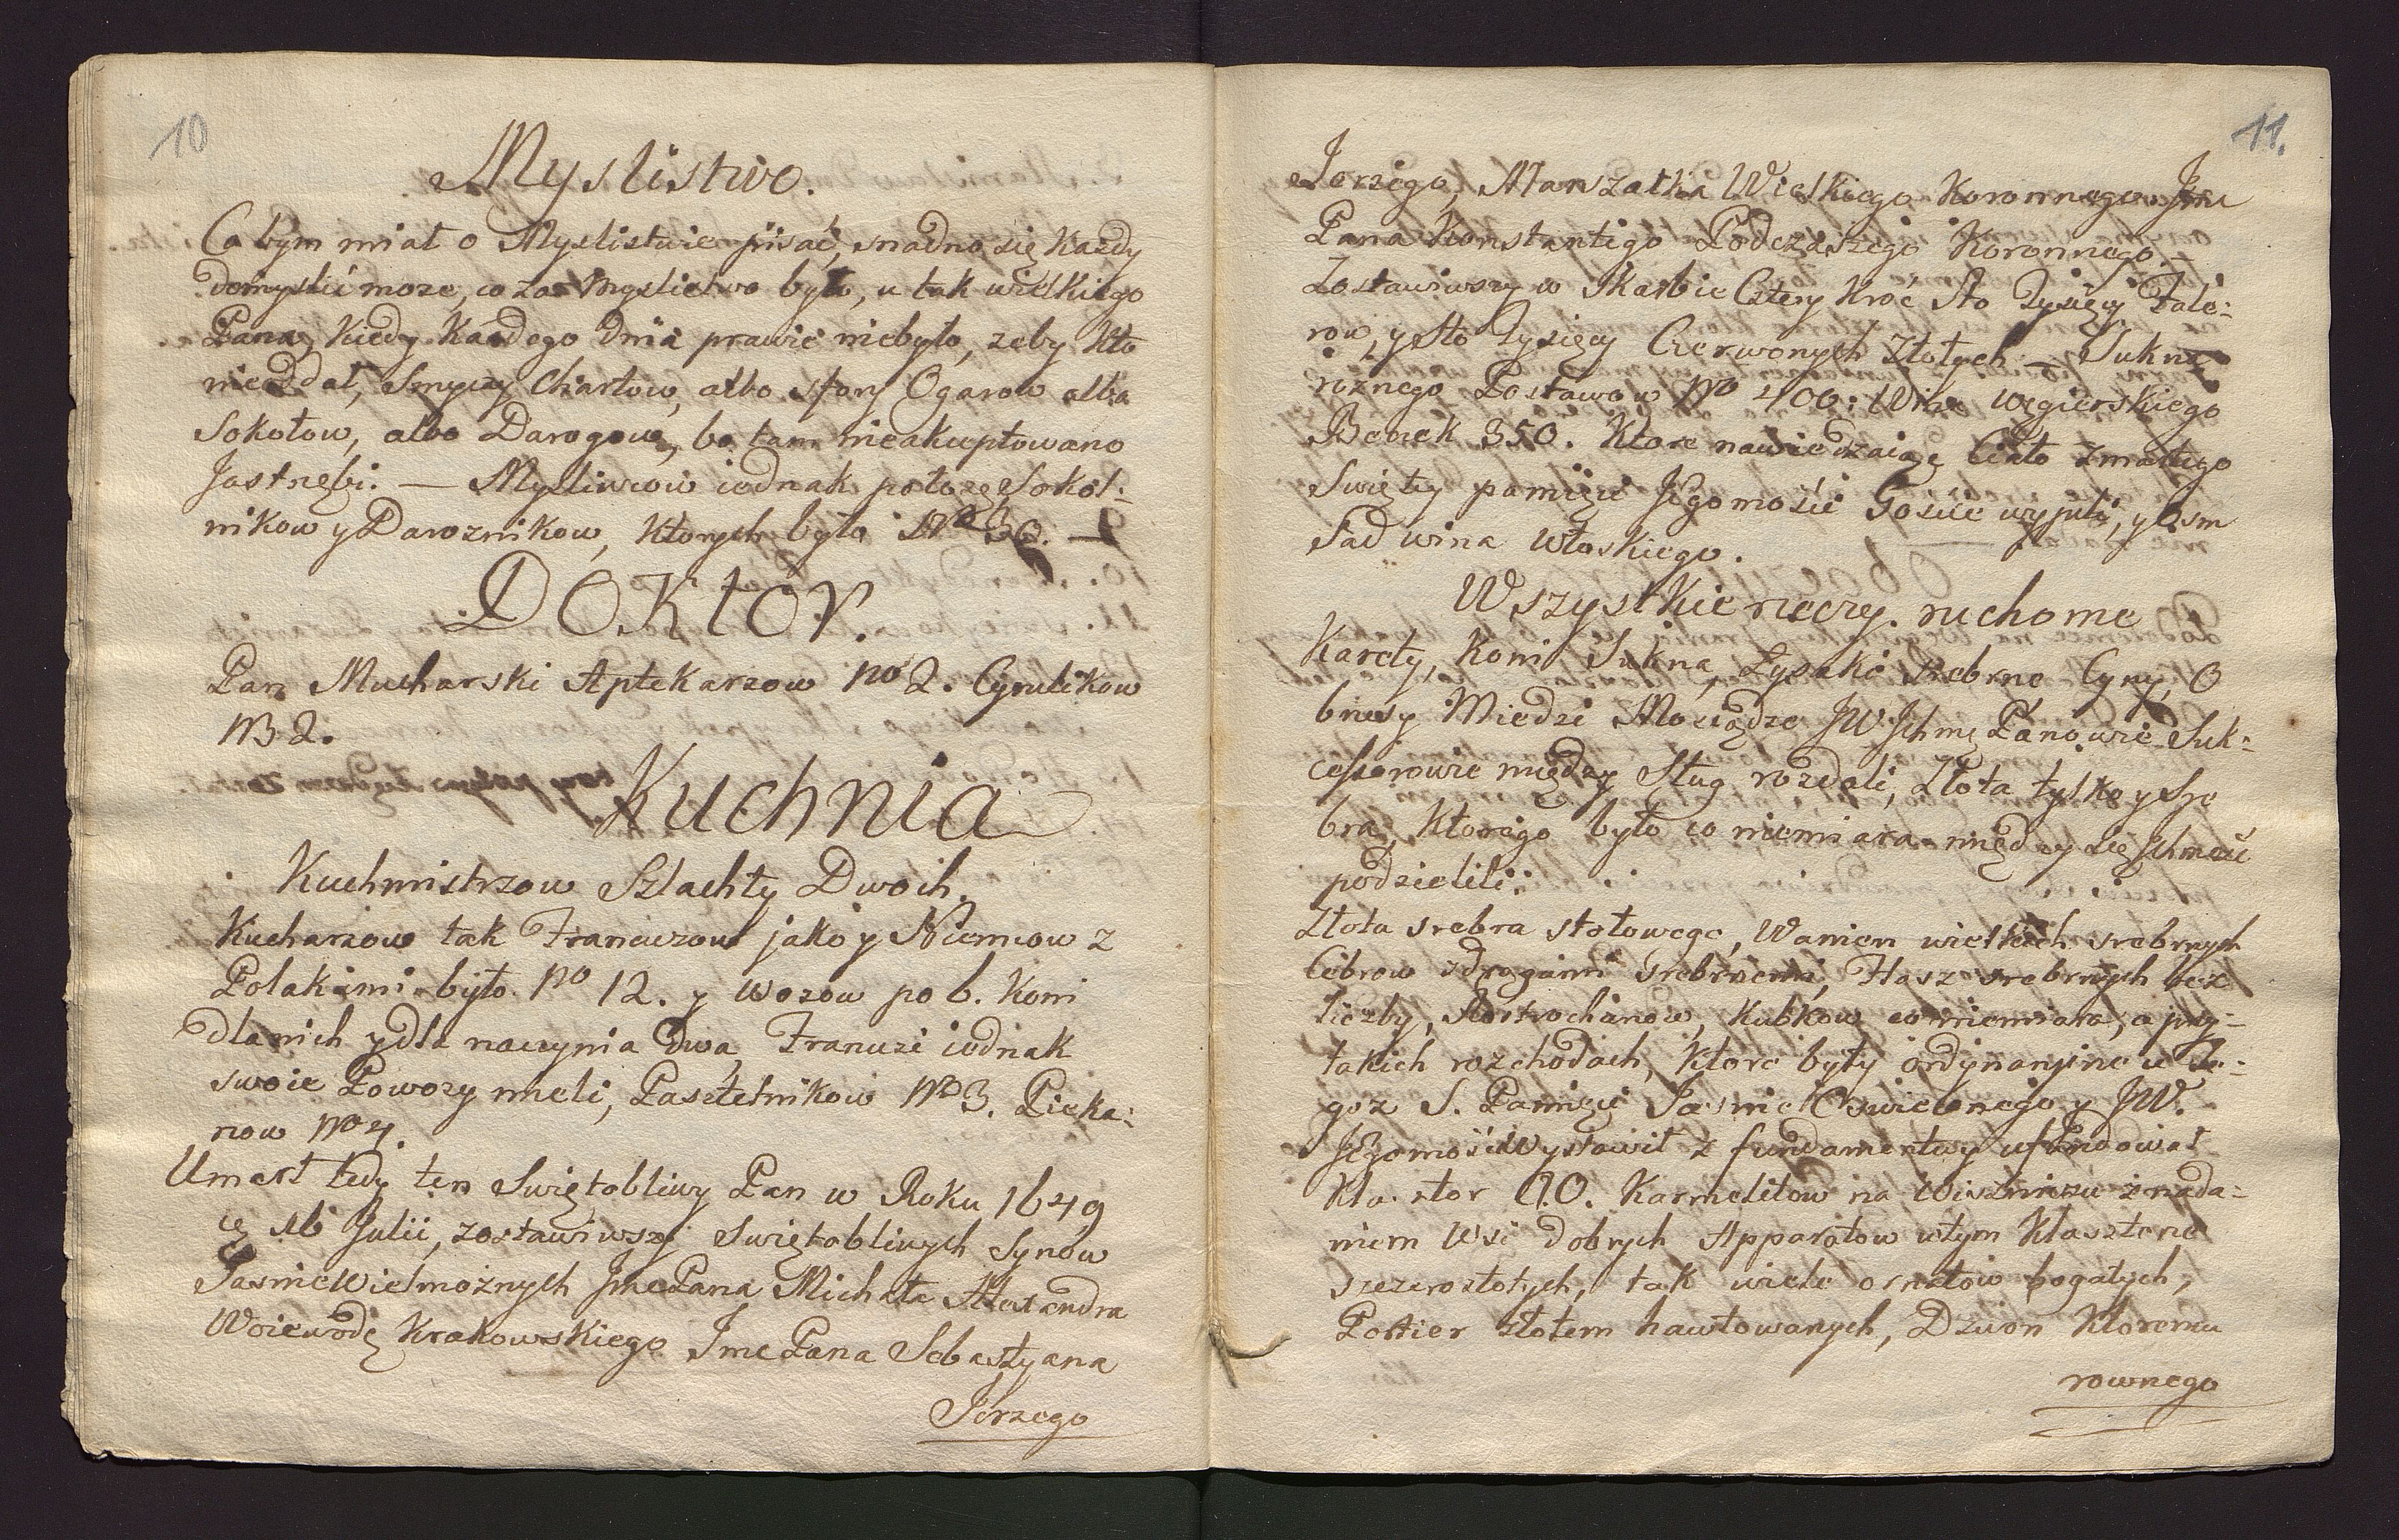 10
Myslistwo.
Co bym miał o Myslistwie pisać, snadno się każdy
domyslić może, co za Myslistwo było, u tak wielkiego
Pana, Kiedy Każdego Dnia prawie niebyło, zeby kto
nieoddał, Smyczy Chartow, albo sfory Ogarow albo
Sokołow, albo Darogow, bo tam nieakceptowano
Jastrzębi. — Mysliwcow iednak położę Sokol:
nikow y Darożnikow, Ktorych było No 30. —
Doktor.
Pan Mucharski Aptekarzow No 2. Cyrulikow
No 2.
Kuchnia
Kuchmistrzow Szlachty Dwoih.
Kucharzow tak Francuzow jako y Niemcow z
Polakami było No 12. y wozow po 6. Koni
dla nich y dla naczynia dwa, Francuzi iednak
swoie Powozy mieli, Pasztetnikow No 3. Pieka:
rzow No 4.
Umarł tedy ten Swiętobliwy Pan w Roku 1649
16 Julii, zostawiwszy Swiętobliwych Synow
Jasnie Wielmożnych Jmc Pana Michała Alexandra
Woiewodę Krakowskiego Jmc Pana Sebastyana
Jerzego
11.
Jerzego, Marszałka Wielkiego Koronnego Jmc
Pana Konstantego Podczaszego Koronnego.—
Zostawiwszy w Skarbie Cztery Kroć Sto Tysięcy Tale:
row, y Sto Tysięcy Czerwonych Złotych — Sukna
roznego Postawow No 400: Wina węgierskiego
Beczek 350. Ktore nawiedzaiąc Ciało zmarłego
Swiętey pamięci Jegomości Goście wypili, y Osm
Fad wina włoskiego.
Wszystkie rzeczy ruchome
Karety, Koni Sukna, Łyszki Srebrne Cyny, O
brusy Miedzi Mosiądze JW Jchmę Panowie Suk:
cessorowie między Sług rozdali, Złota tylko y Sre
bra, Ktorego było co niemiara między się Jchmość
podzielili:
Złota srebra stołowego, Wanien wielkich srebrnych
Cebrow z drągami srebrnemi, Flasz srebrnych bez
liczby, Roztrochanow, Kubkow co niemiara, a przy
takich rozchodach, Ktore były ordynaryine u Te:
goz S. Pamięci Jasnie Oswieconego y JW.
Jegomość Wystawił z fundamentu y ufundował
Kla. stor O.O. Karmelitow na Wiszniczu z nada:
niem Wsi dobrych Apparatow w tym Klasztorze
szczerozłotych, tak wiele ornatow bogatych,
Portier złotem hawtowanych, Dzwon Ktoremu
rownego